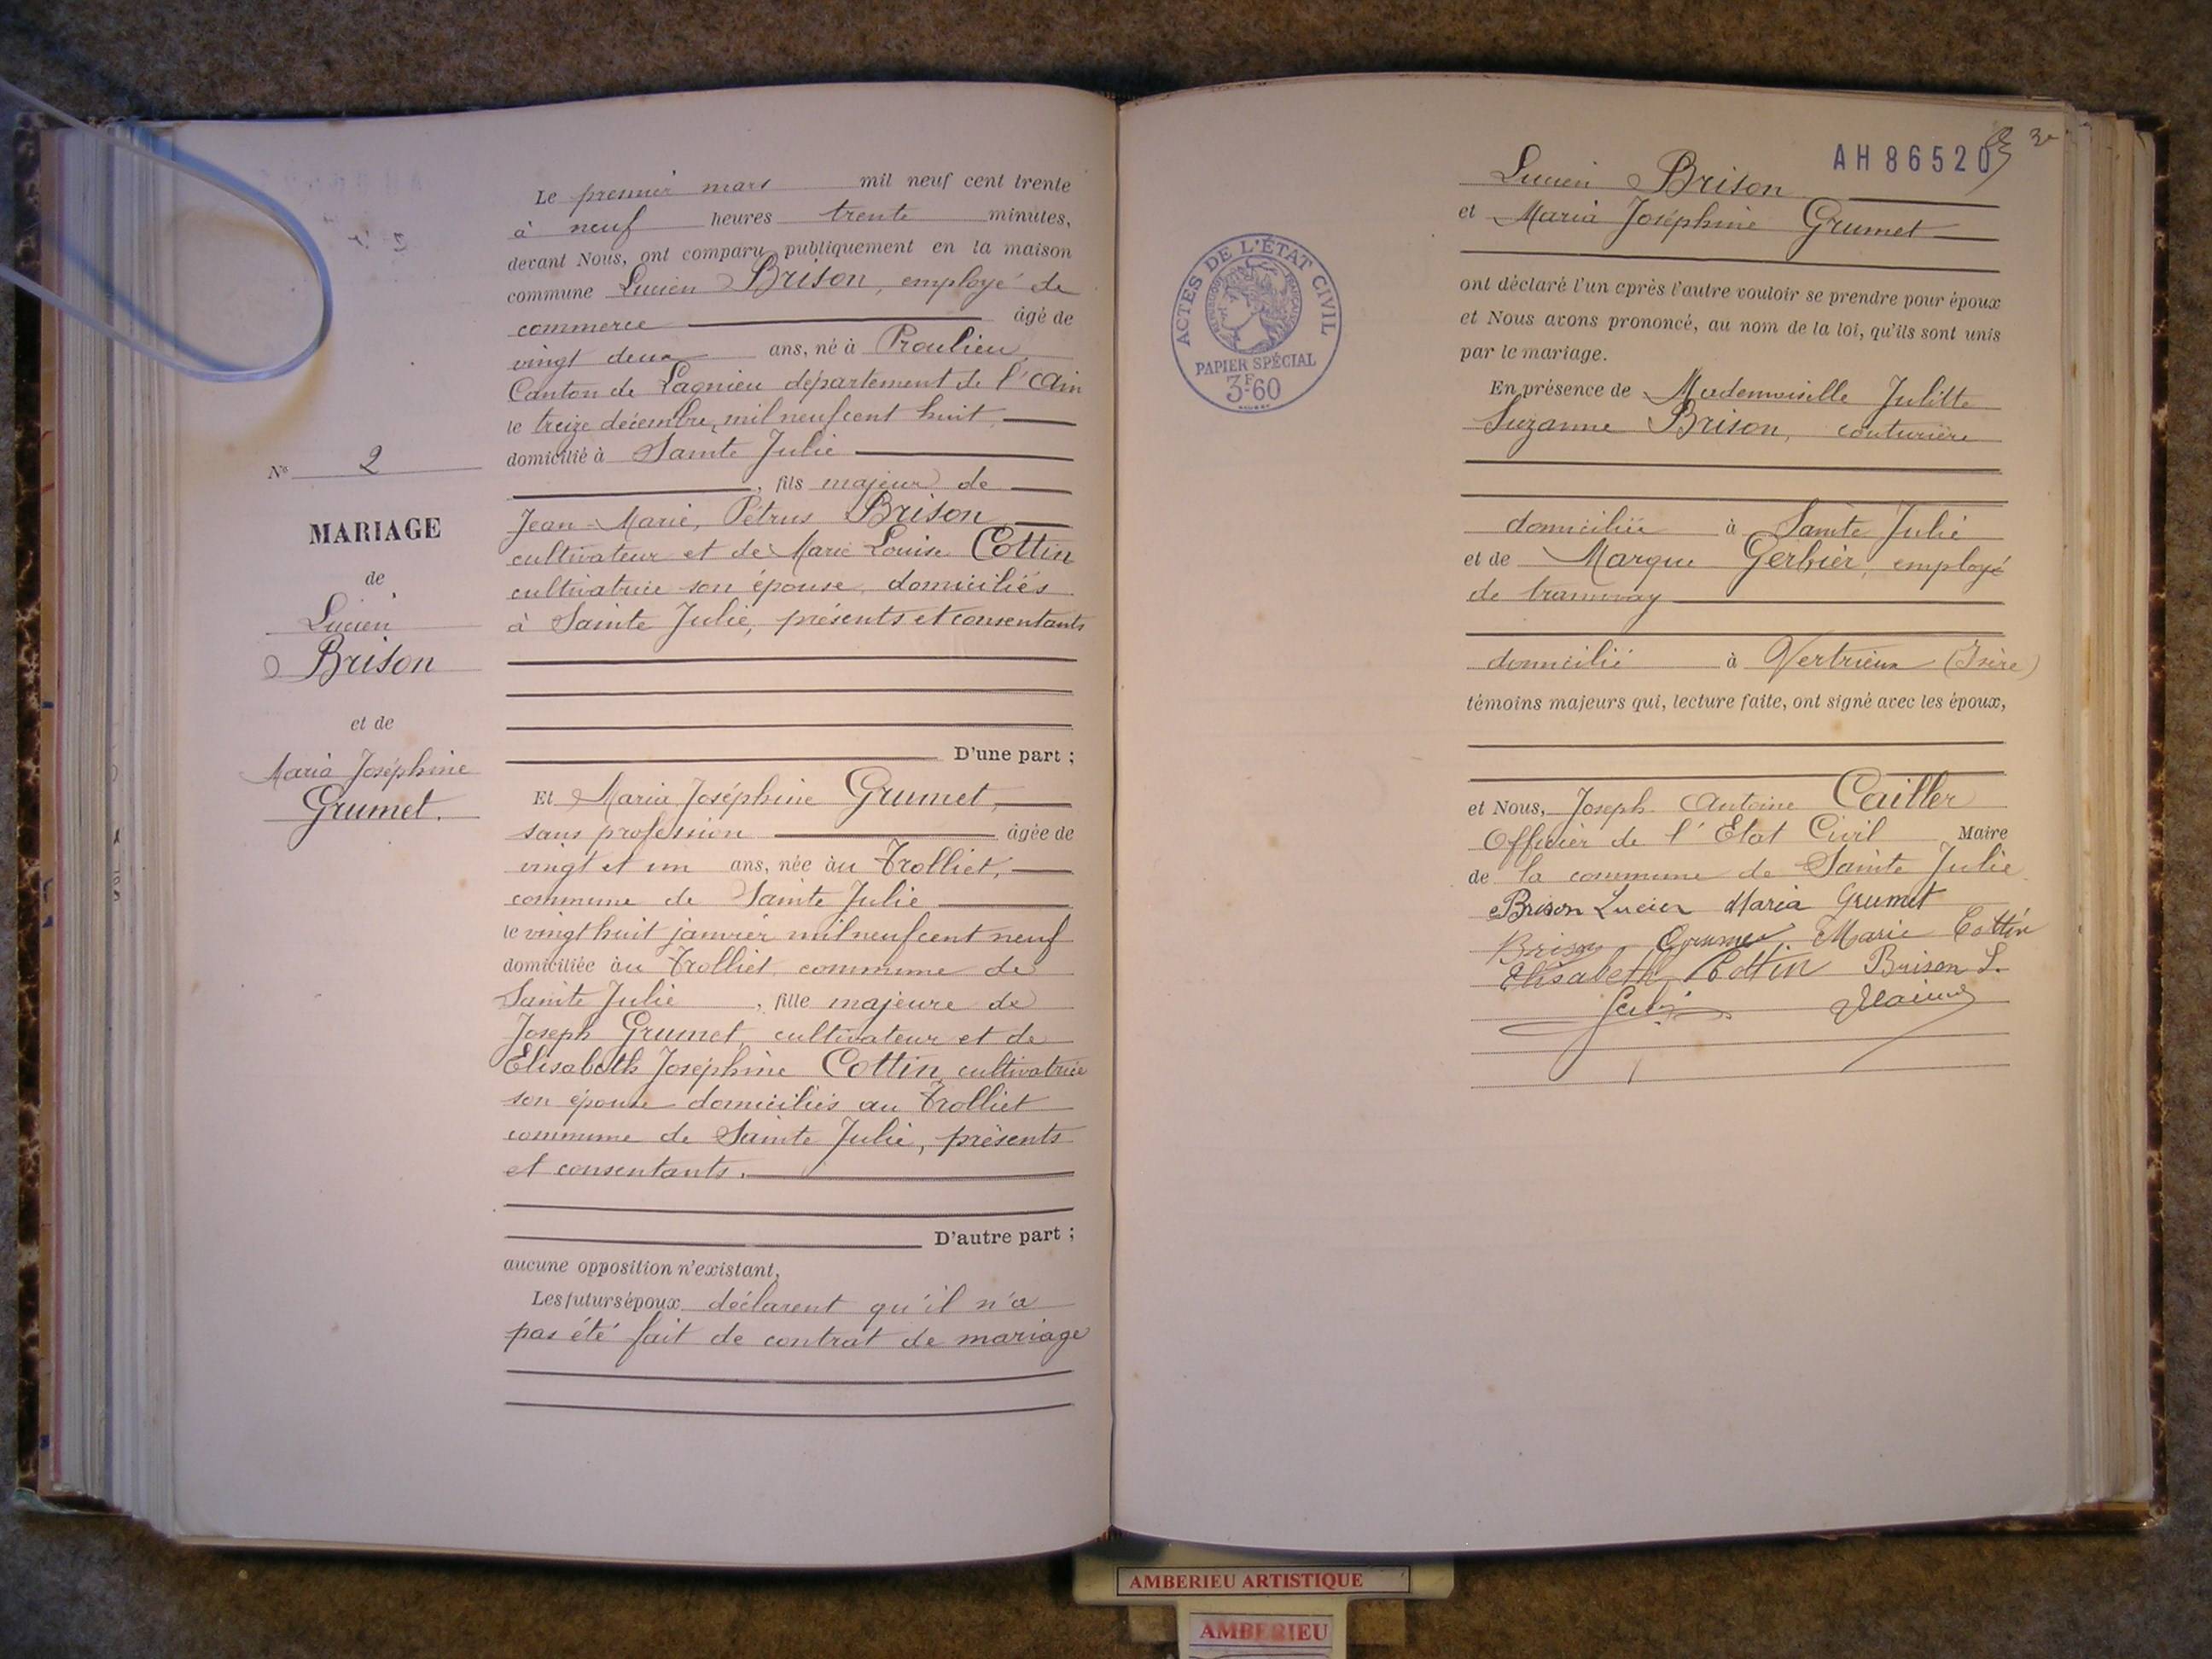 Le premier mars mil neuf cent trente
à neuf heures trente minutes,
devant Nous, ont comparu publiquement en la maison
commune Lucien Brison, employé de
commerce âgé de
vingt deux ans, né à Proulieu,
Canton de Lagnieu département de l'Ain
le treize décembre mil neuf cent huit,
domicilié à Sainte Julie
, fils majeur de
Jean-Marie, Pétrus Brison
cultivateur et de Marie Louise Cottin
cultivatrice son épouse, domiciliés
à Sainte Julie, présents et consentants
D'une part ;
N° 2
MARIAGE
de
Lucien
Brison
et de
Maria Joséphine
Grumet.
Et Maria Joséphine Grumet,
sans profession âgée de
vingt et un ans, née au Trolliet,
commune de Sainte Julie
le vingt huit janvier mil neuf cent neuf
domiciliée au Trolliet, commune de
Sainte Julie, fille majeure de
Joseph Grumet, cultivateur et de
Elisabeth Joséphine Cottin, cultivatrice
son épouse domiciliés au Trolliet
commune de Sainte Julie, présents
et consentants.
D'autre part ;
aucune opposition n'existant,
Les futurs époux déclarent qu'il n'a
pas été fait de contrat de mariage
AH 86520
Lucien Brison
et Maria Joséphine Grumet
ont déclaré l'un après l'autre vouloir se prendre pour époux
et Nous avons prononcé, au nom de la loi, qu'ils sont unis
par le mariage.
En présence de Mademoiselle Julitte
Suzanne Brison, couturière
domiciliée à Sainte Julie
et de Marque Gerbier, employé
de tramway
domicilié à Vertrieux (Isère)
témoins majeurs qui, lecture faite, ont signé avec les époux,
et Nous, Joseph Antoine Cailler
Officier de l'Etat Civil Maire
de la commune de Sainte Julie
Brison Lucien Maria Grumet
Brison Grumet Marie Cottin
Elisabeth Cottin Brison S.
ACTES DE L'ÉTAT CIVIL
RÉPUBLIQUE FRANÇAISE
PAPIER SPÉCIAL
3F60
AMBERIEU ARTISTIQUE
AMBERIEU